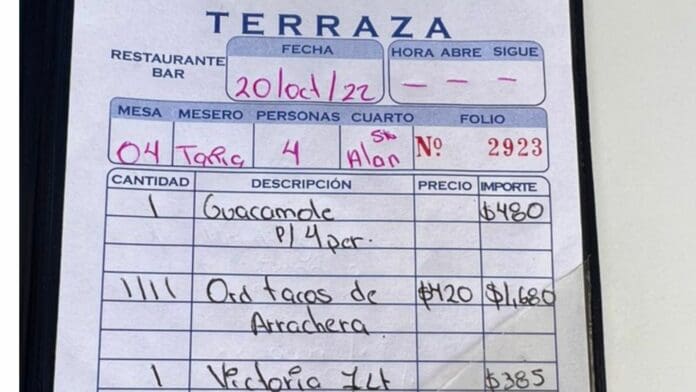 TERRAZA
RESTAURANTE BAR
FECHA
20/oct/22
HORA ABRE SIGUE
— — —
MESA MESERO PERSONAS CUARTO FOLIO
04 Tania 4 Sr. Alan Nº 2923
CANTIDAD DESCRIPCIÓN PRECIO IMPORTE
1 Guacamole $480
P/4 per.
1111 Ord tacos de $420 $1,680
Arrachera
1 Victoria 1Lt $385